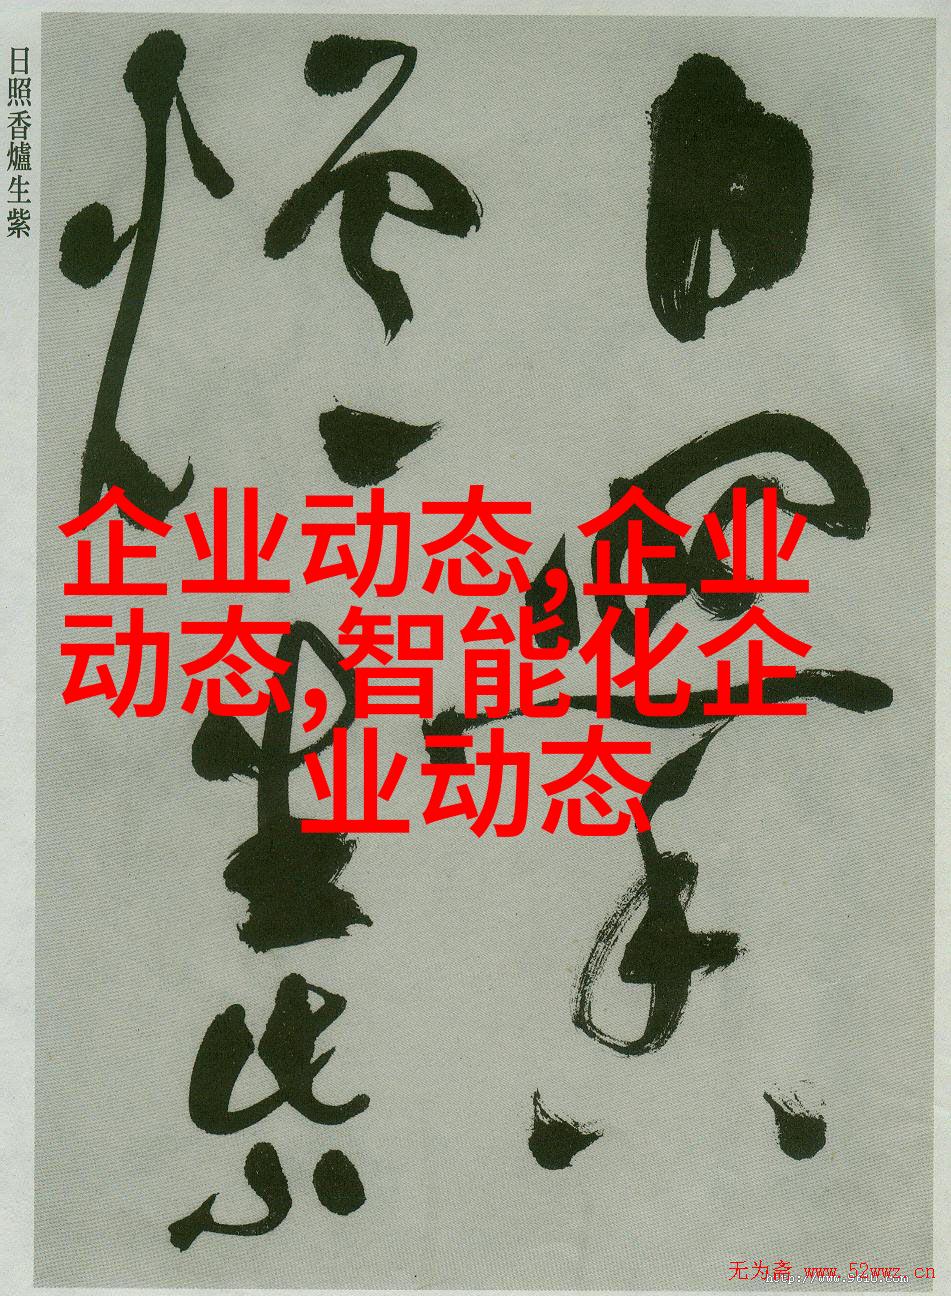 日照香爐生紫
企业动态,企业
动态,智能化企
业动态
无为斋 www.52wwz.cn
http://www.9610.com